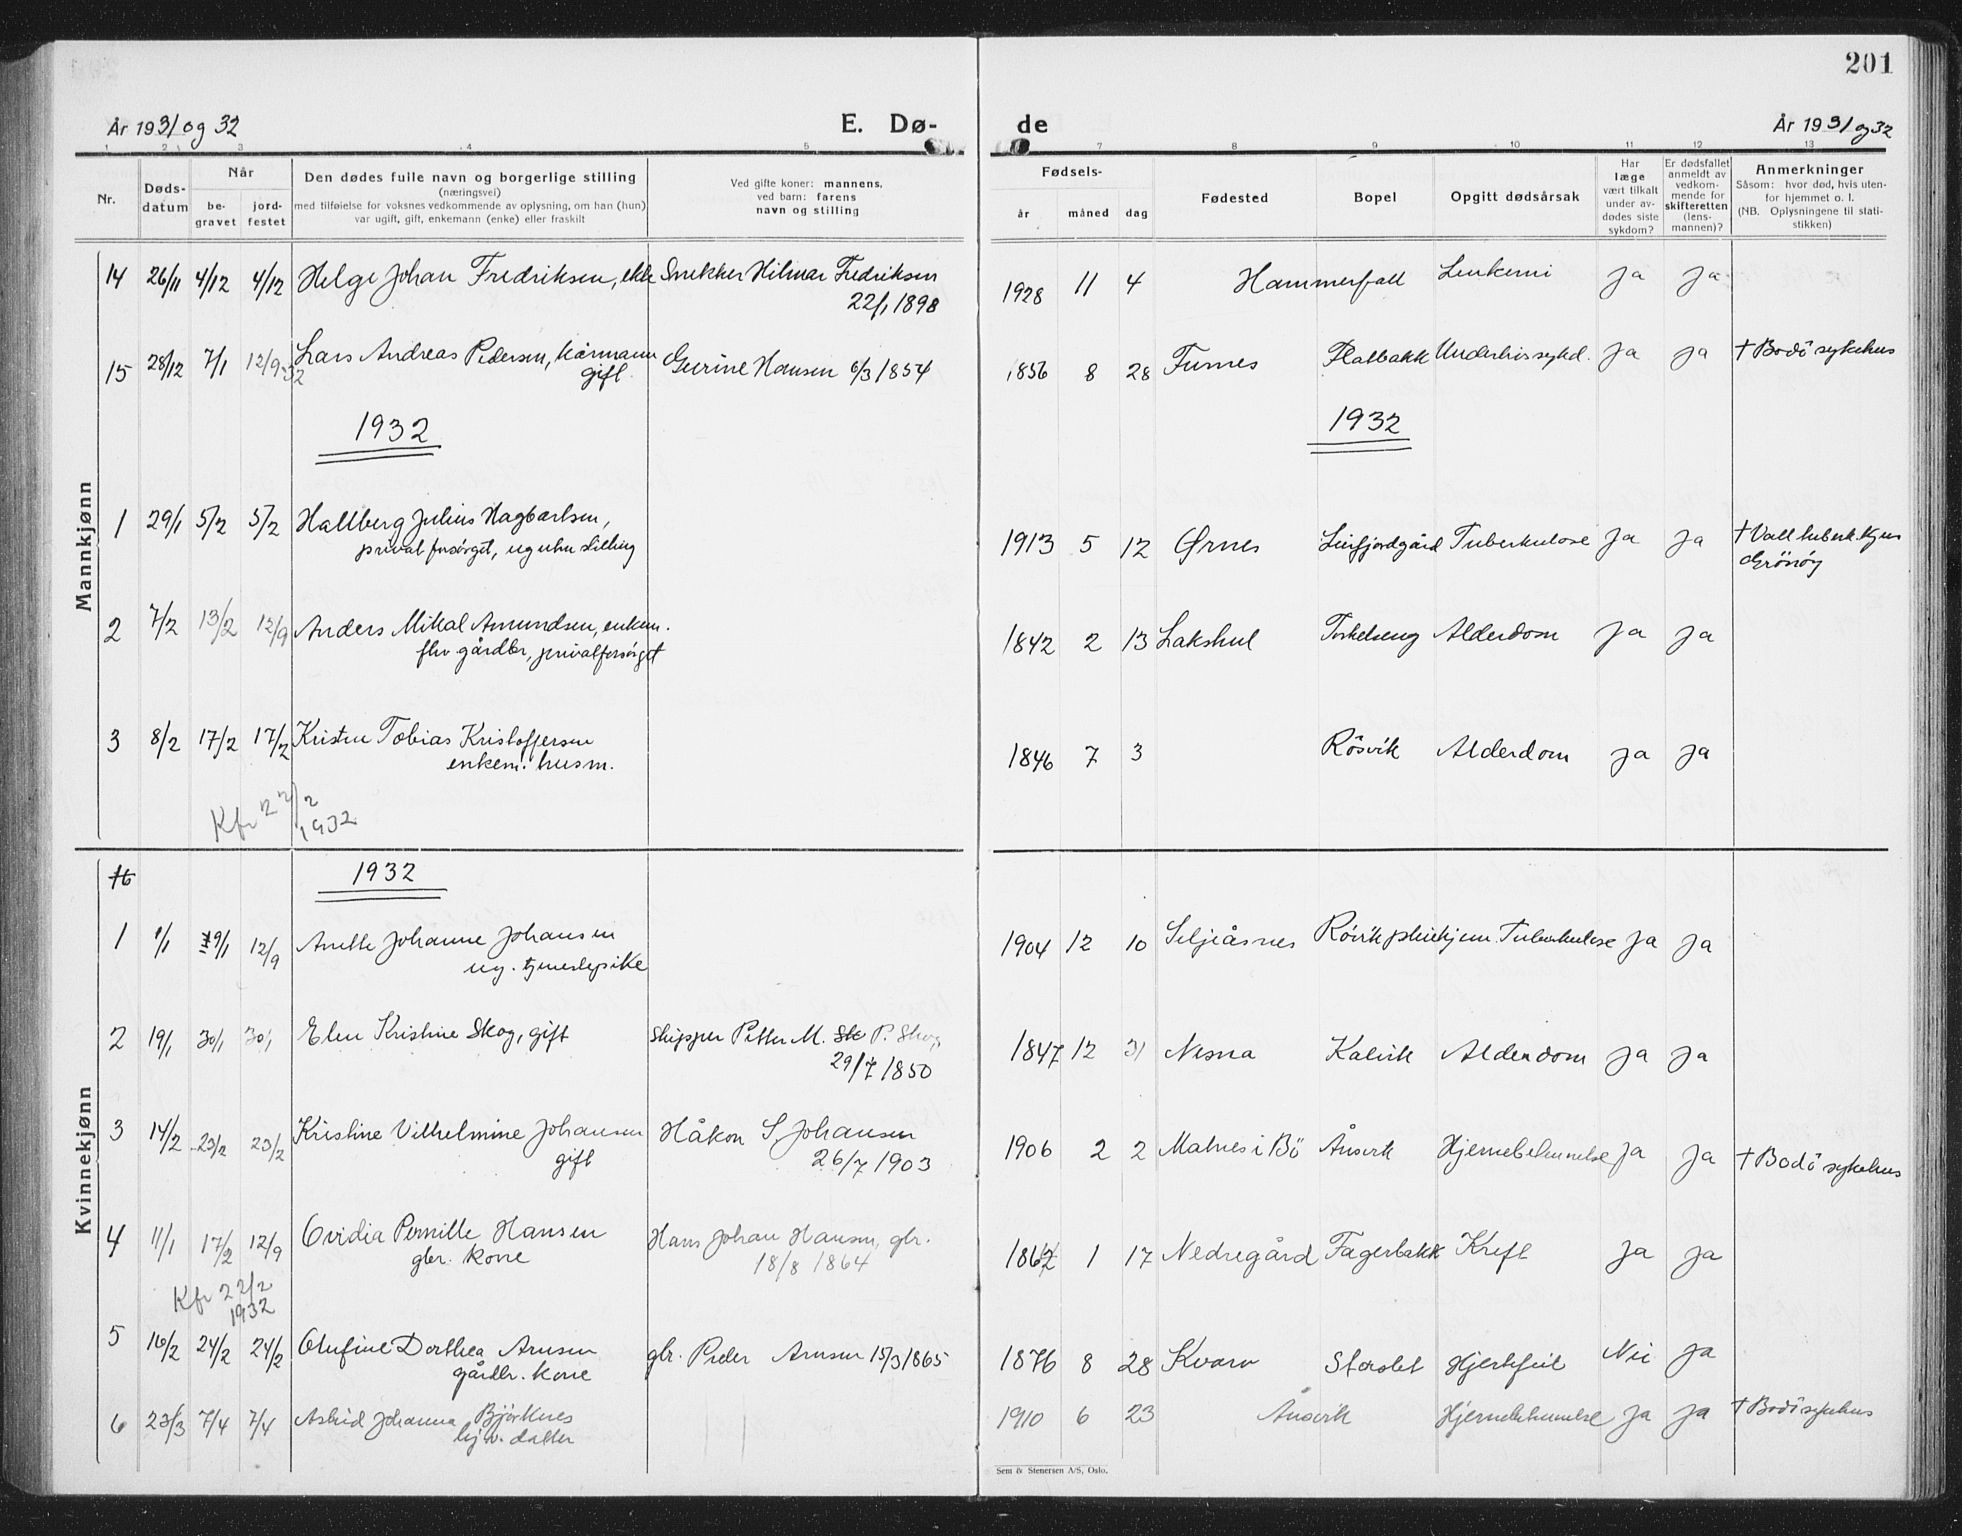 201
År 1931 og 32
E. Dø-
de
År 1931 og 32
1 2 3 4 5 7 8 9 10 11 12 13
Nr.
Døds-
datum
Når
be-
gravet
jord-
festet
Den dødes fulle navn og borgerlige stilling
(næringsvei)
med tilføielse for voksnes vedkommende av oplysning, om han (hun)
var ugift, gift, enkemann (enke) eller fraskilt
Ved gifte koner: mannens,
ved barn: farens
navn og stilling
Fødsels-
år måned dag
Fødested
Bopel
Opgitt dødsårsak
Har
læge
vært tilkalt
under av-
dødes siste
sykdom?
Er dødsfallet
anmeldt av
vedkom-
mende for
skifteretten
(lens-
mannen)?
Anmerkninger
Såsom: hvor død, hvis uten-
for hjemmet o. l.
(NB. Oplysningene til stati-
stikken)
Mannkjønn
14 26/11 4/12 4/12 Helge Johan Fredriksen, ekte Snekker Hilmar Fredriksen 1928 11 4 Hammerfall Leukemi Ja Ja
22/1 1898
15 28/12 7/1 12/9-32 Lars Andreas Pedersen, kårmann Gurine Hansen 6/3 1854 1856 8 28 Furnes Flatbakk Underlivssykd. Ja Ja † Bodö sykehus
gift
1932 1932
1 29/1 5/2 5/2 Hallberg Julius Hagbartsen, 1913 5 12 Ørnes Leirfjordgård Tuberkulose Ja Ja † Vall tuberk.hjem
privat forsörget, ug uten stilling Grönöy
2 7/2 13/2 12/9 Anders Mikal Amundsen, enkem. 1842 2 13 Lakshul Torkelseng Alderdom Ja Ja
fhv gårdbr, privatforsörget
3 8/2 17/2 17/2 Kristen Tobias Kristoffersen 1846 7 3 Rösvik Alderdom Ja Ja
enkem. husm.
Kfr 22/2
1932
Kvinnekjønn
1932
1 1/1 9/1 12/9 Anette Johanne Johansen 1904 12 10 Seljeåsnes Rövik pleiehjem Tuberkulose Ja Ja
ug. tjenestepike
2 19/1 30/1 30/1 Elen Kristine Skog, gift Skipper Petter M. P. Skog 1847 12 31 Nesna Kalvik Alderdom Ja Ja
29/7 1850
3 14/2 23/2 23/2 Kristine Vilhelmine Johansen Håkon S. Johansen 1906 2 2 Matnes i Bö Ånsvik Hjernebetennelse Ja Ja † Bodö sykehus
gift 26/7 1903
4 11/1 17/2 12/9 Ovidia Pernille Hansen Hans Johan Hansen, gbr. 1867 1 17 Nedregård Fagerbakk Kreft Ja Ja
gbr. kone 18/8 1864
Kfr 22/2
1932
5 16/2 24/2 24/2 Olufine Dorthea Arnsen gbr. Peder Arnsen 15/3 1865 1876 8 28 Kvarv Storslet Hjertefeil Nei Ja
gårdbr. kone
6 23/3 7/4 7/4 Astrid Johanna Björknes 1910 6 23 Ånsvik Hjernebetennelse Ja Ja † Bodö sykehus
hjv. datter
Sem & Stenersen A/S, Oslo.